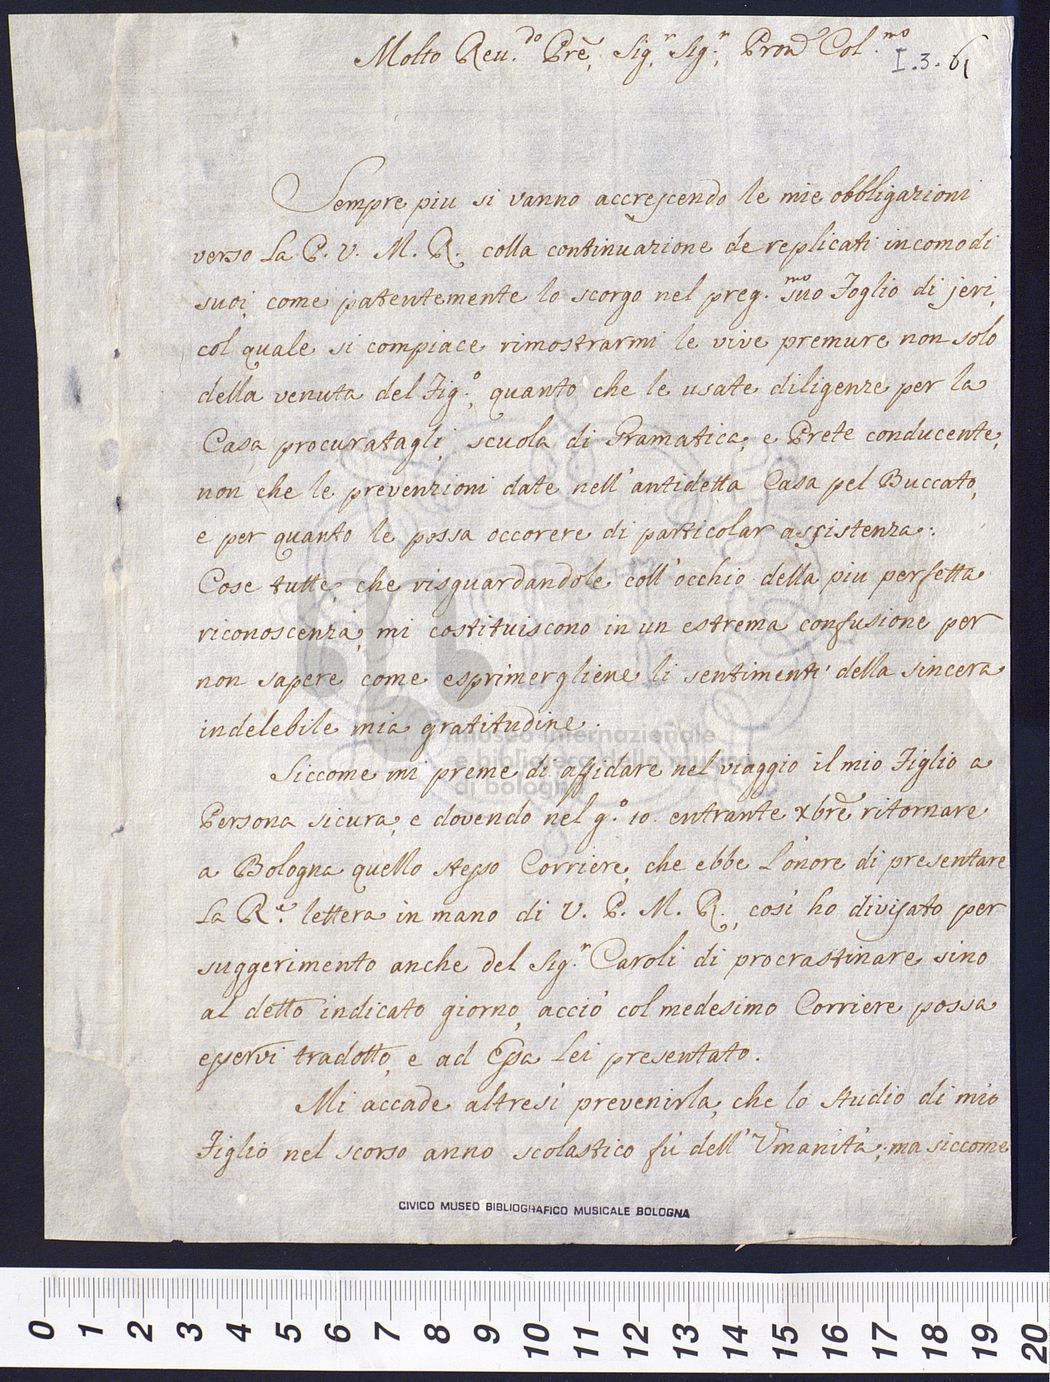 Molto Reu.do Prē, Sig.r Sig.r, Pron̄ Col.mo
I.3.61
Sempre piu si vanno accrescendo le mie obbligazioni
verso La P. V. M. R. colla continuazione de replicati incomodi
suoi, come patentemente lo scorgo nel preg.mo suo Foglio di jeri,
col quale si compiace rimostrarmi le vive premure non solo
della venuta del Fig.o, quanto che le usate diligenze per la
Casa procuratagli, scuola di Gramatica, e Prete conducente,
non che le prevenzioni date nell'antidetta Casa pel Buccato,
e per quanto le possa occorere di particolar assistenza:
Cose tutte, che risguardandole coll'occhio della piu perfetta
riconoscenza, mi costituiscono in un estrema confusione per
non sapere come esprimergliene li sentimenti della sincera
indelebile mia gratitudine.
Siccome mi preme di affidare nel viaggio il mio Figlio a
Persona sicura, e dovendo nel g.o 10. entrante xbrē ritornare
a Bologna quello stesso Corriere, che ebbe L'onore di presentare
La R.e lettera in mano di V. P. M. R., così ho divisato per
suggerimento anche del Sig.r Caroli di procrastinare sino
al detto indicato giorno, acciò col medesimo Corriere possa
esservi tradotto, e ad Essa Lei presentato.
Mi accade altresì prevenirla, che lo studio di mio
Figlio nel scorso anno scolastico fù dell'Umanità; ma siccome
CIVICO MUSEO BIBLIOGRAFICO MUSICALE BOLOGNA
museo internazionale
e biblioteca della musica
di bologna
0 1 2 3 4 5 6 7 8 9 10 11 12 13 14 15 16 17 18 19 20